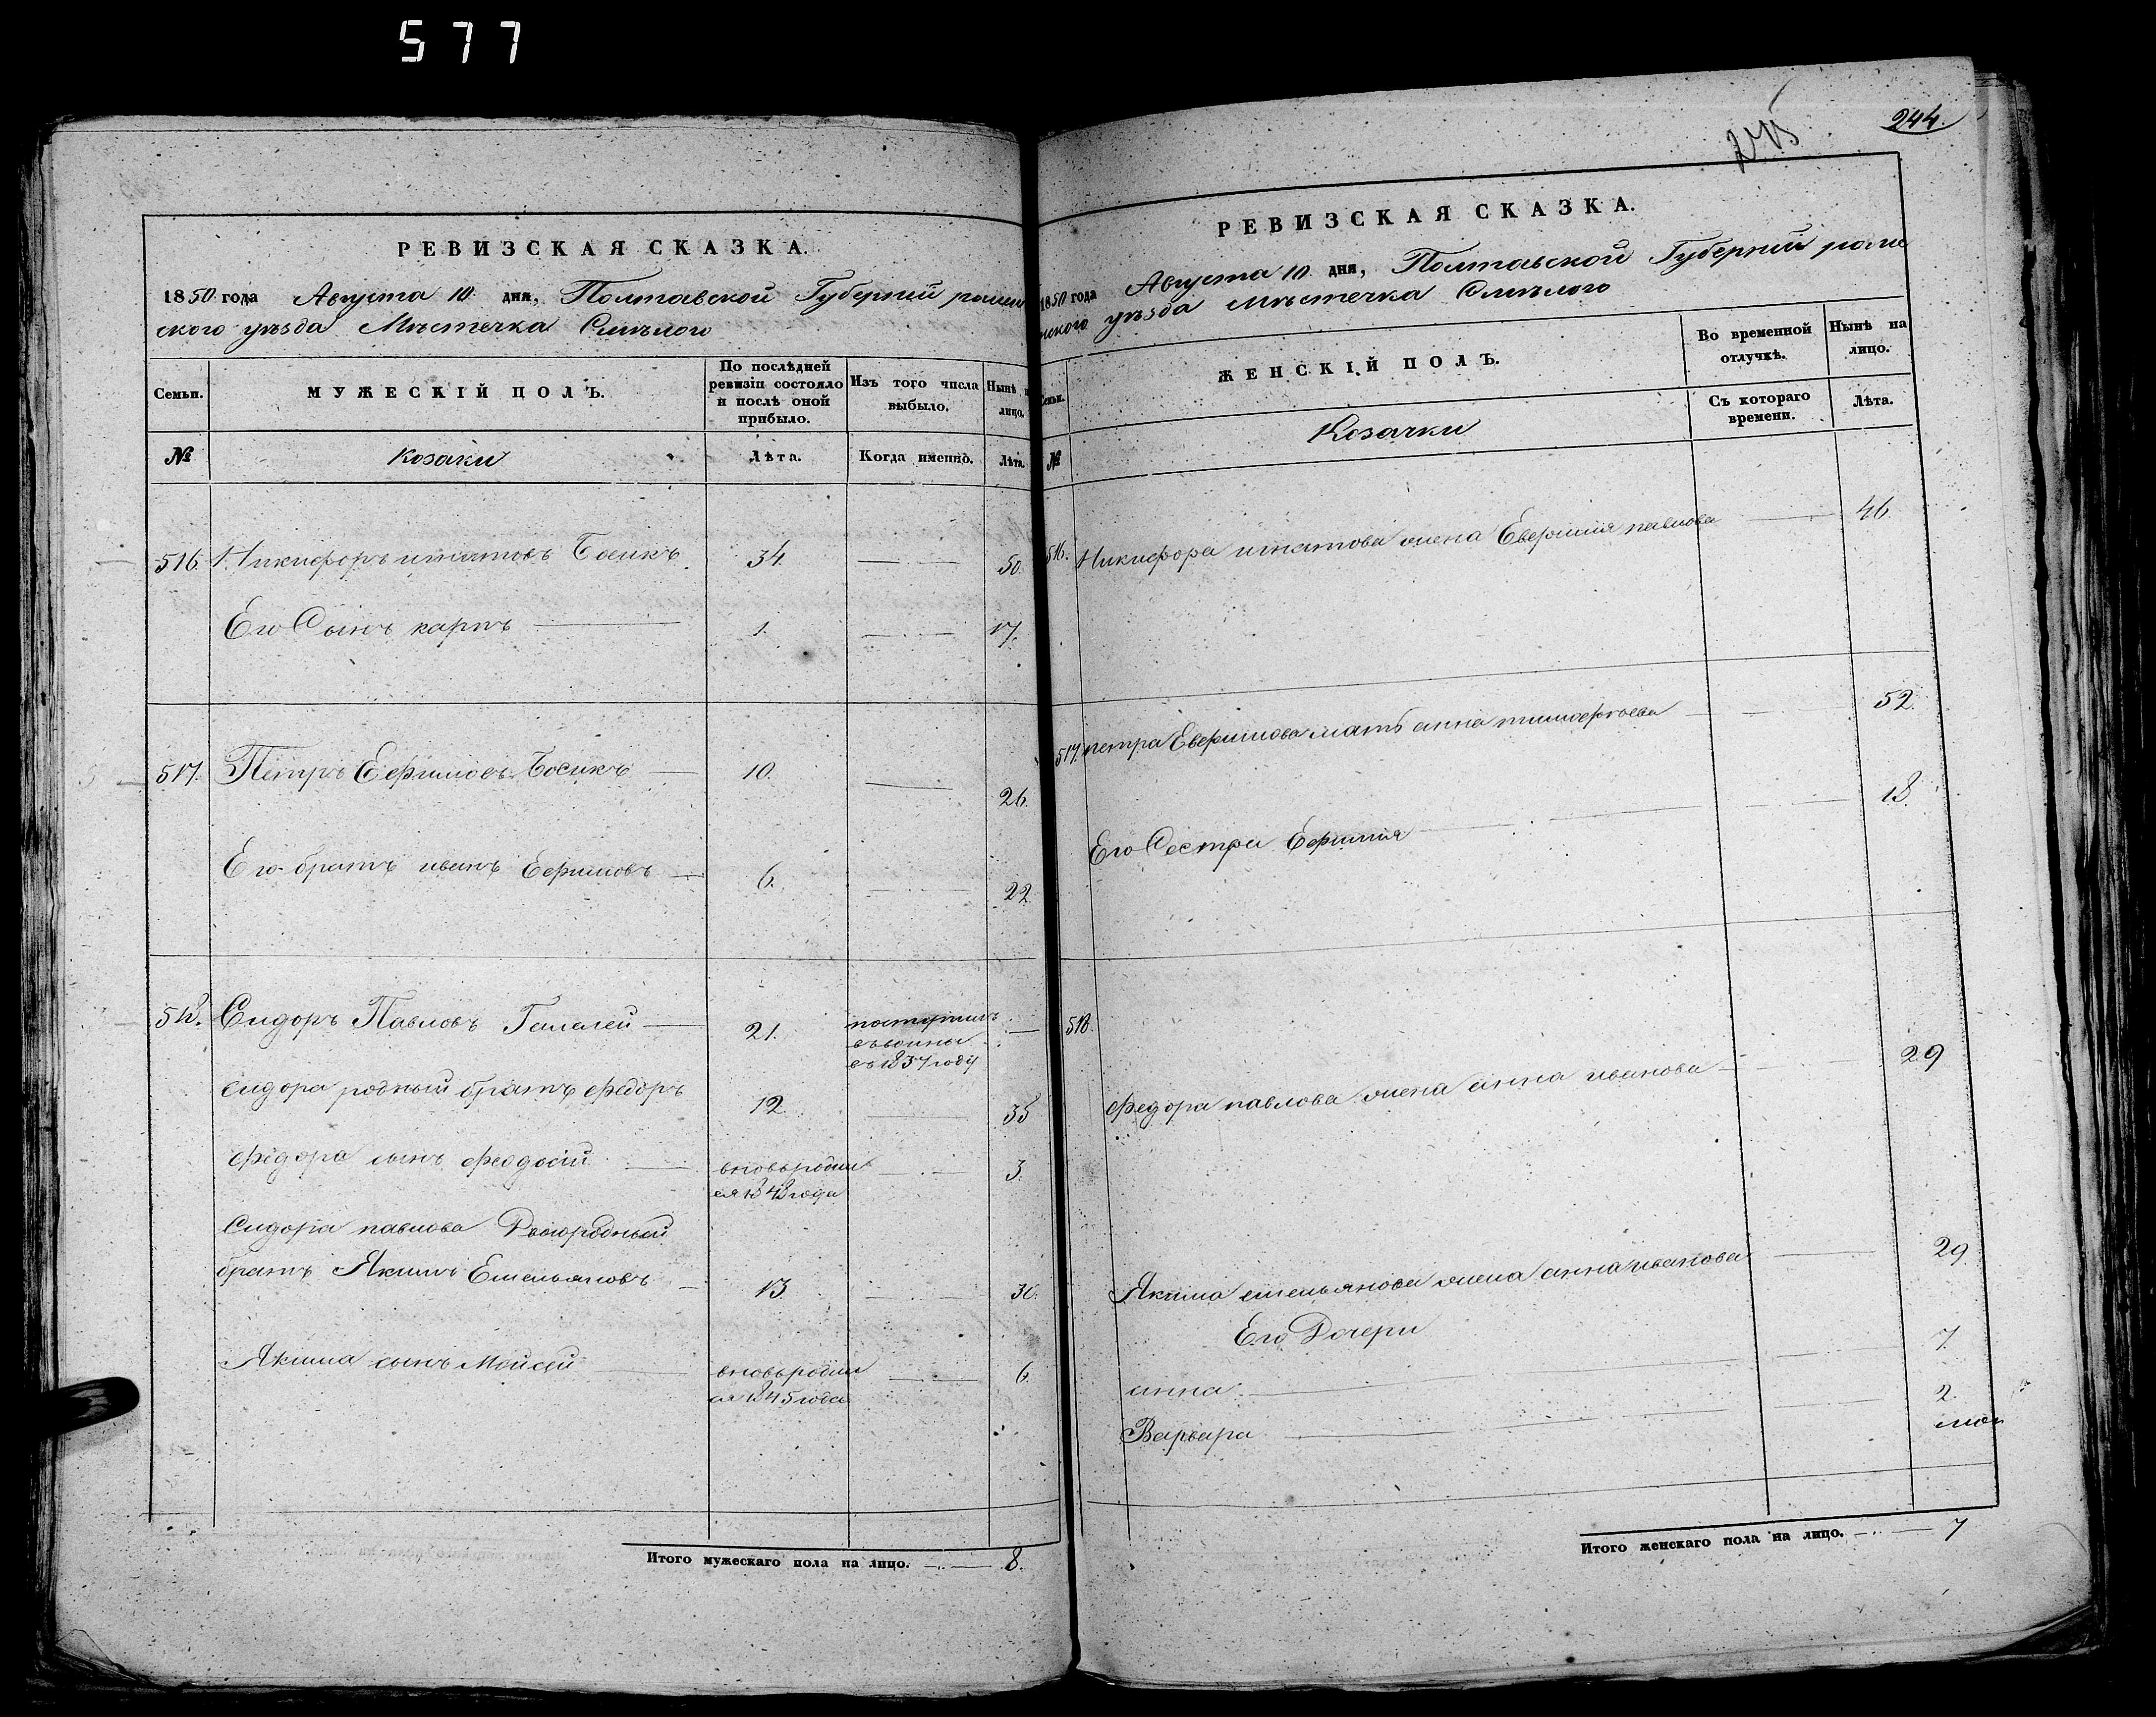 577
РЕВИЗСКАЯ СКАЗКА.
1850 года Августа 10 дня, Полтавской Губерніи ромен
ского уѣзда Мѣстечка Смѣлого
Семьи.
МУЖЕСКІЙ ПОЛЪ.
По послѣдней
ревизіи состояло
и послѣ оной
прибыло.
Изъ того числа
выбыло.
Нынѣ
лицо.
№
Козаки
Лѣта.
Когда именно.
Лѣта.
516. Никифоръ игнатовъ Босикъ 34. 50.
Его Сынъ карпъ 1. 17.
517. Петръ Евфимовъ Босикъ 10. 26.
Его братъ иванъ Евфимовъ 6. 22
518. Сидоръ Павловъ Галалей 21. поступилъ
въ воины
въ 1837 году
сидора родный братъ федоръ 12. 35
федора сынъ феодосій вновь родил 3.
ся 1848 года
Сидора павлова Двоюродный
братъ Якимъ Емельяновъ 13 30.
Якима сынъ Мойсей вновь родил 6.
ся 1845 года
Итого мужескаго пола на лицо. 8.
244.
РЕВИЗСКАЯ СКАЗКА.
1850 года Августа 10 дня, Полтавской Губерніи роме
нского уѣзда Мѣстечка Смѣлого
Семьи.
ЖЕНСКІЙ ПОЛЪ.
Во временной
отлучкѣ.
Нынѣ на
лицо.
Съ котораго
времени.
Лѣта.
№
Козачки
516. Никифора игнатова жена Евфимия павлова 46
517. петра Евфимова мать анна тимофѣева 52.
Его Сестра Ефимия 18.
518.
федора павлова жена анна иванова 29
Якима емельянова жена анна иванова 29.
Его Дочери
анна 7.
Варвара 2.
Итого женскаго пола на лицо. 7